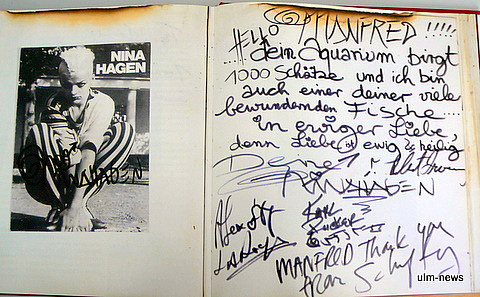 NINA
HAGEN
MANFRED !!!!!
HELLO
dein Aquarium birgt
1000 Schätze und ich bin
auch einer deiner viele
bewundernden Fische....
in ewiger Liebe,
denn Liebe ist ewig & heilig
Deine
HAGEN
Alex
MANFRED Thank you
from
ulm-news